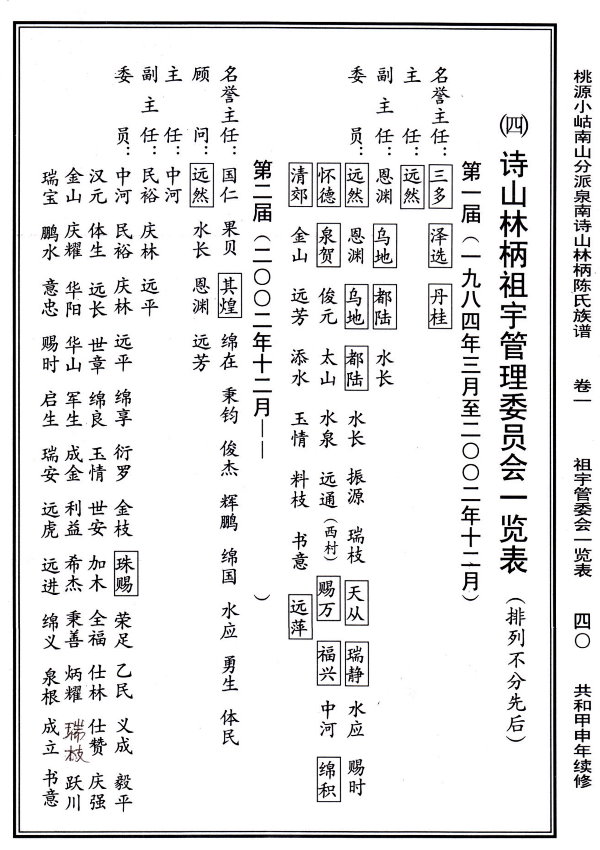 桃源小岵南山分派泉南诗山林柄陈氏族谱 卷一 祖宇管委会一览表 四〇 共和甲申年续修
㈣ 诗山林柄祖宇管理委员会一览表（排列不分先后）
第一届（一九八四年三月至二〇〇二年十二月）
名誉主任：三多 泽选 丹桂
主任：远然
副主任：恩渊 乌地 都陆 水长
委员：远然 恩渊 乌地 都陆 水长 振源 瑞枝 天从 瑞静 水应 赐时
怀德 泉贺 俊元 太山 水泉 远通（西村） 赐万 福兴 中河 绵积
清郊 金山 远芳 添水 玉情 料枝 书意 远萍
第二届（二〇〇二年十二月——　）
名誉主任：国仁 果贝 其煌 绵在 秉钧 俊杰 辉鹏 绵国 水应 勇生 体民
顾问：远然 水长 恩渊 远芳
主任：中河
副主任：民裕 庆林 远平
委员：中河 民裕 庆林 远平 绵享 衍罗 金枝 珠赐 荣足 乙民 义成 毅平
汉元 体生 远长 世章 绵良 玉情 世安 加木 全福 仕林 仕赞 庆强
金山 庆耀 华阳 华山 军生 成金 利益 希杰 秉善 炳耀 瑞枝 跃川
瑞宝 鹏水 意忠 赐时 启生 瑞安 远虎 远进 绵义 泉根 成立 书意